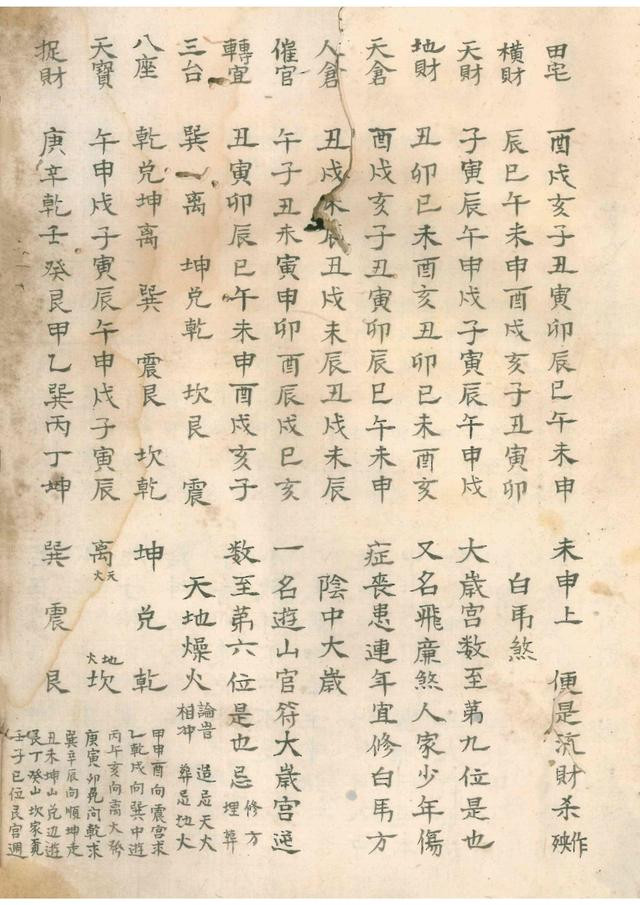 田宅 酉戌亥子丑寅卯辰巳午未申 未申上 便是流財杀作殃
横財 辰巳午未申酉戌亥子丑寅卯 白帍煞
天財 子寅辰午申戌子寅辰午申戌 大歲宫数至第九位是也
地財 丑卯巳未酉亥丑卯巳未酉亥 又名飛廉煞人家少年傷
天倉 酉戌亥子丑寅卯辰巳午未申 症喪患連年宜修白帍方
人倉 丑戌未辰丑戌未辰丑戌未辰 陰中大歲
催官 午子丑未寅申卯酉辰戌巳亥 一名遊山官符大歲宫逆
轉宜 丑寅卯辰巳午未申酉戌亥子 数至第六位是也忌 修方埋葬
三台 巽離 坤兑乾 坎艮 震 天地燥火 論相冲 造忌天火 葬忌地火
八座 乾兑坤離 巽 震艮 坎乾 坤兑乾
天寶 午申戌子寅辰午申戌子寅辰 離天火 坎地火
捉財 庚辛乾壬癸艮甲乙巽丙丁坤 巽震艮
甲申酉向震宫求
乙乾戌向巽中遊
丙午亥向離大發
庚寅卯向乾求
巽辛辰向順坤走
丑未坤山兑边遊
艮丁癸山坎家覔
壬子巳位艮宫週